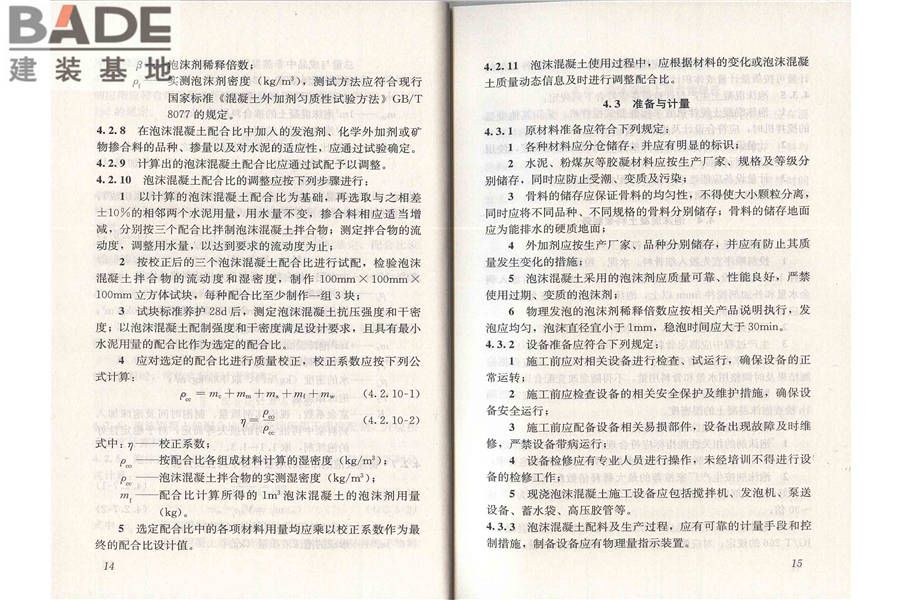 BADE
建装基地
β——泡沫剂稀释倍数;
ρ——实测泡沫剂密度（kg/m³），测试方法应符合现行
国家标准《混凝土外加剂匀质性试验方法》GB/T
8077 的规定。
4.2.8 在泡沫混凝土配合比中加入的发泡剂、化学外加剂或矿
物掺合料的品种、掺量以及对水泥的适应性，应通过试验确定。
4.2.9 计算出的泡沫混凝土配合比应通过试配予以调整。
4.2.10 泡沫混凝土配合比的调整应按下列步骤进行：
1 以计算的泡沫混凝土配合比为基础，再选取与之相差
±10%的相邻两个水泥用量，用水量不变，掺合料相应适当增
减，分别按三个配合比拌制泡沫混凝土拌合物；测定拌合物的流
动度，调整用水量，以达到要求的流动度为止；
2 按校正后的三个泡沫混凝土配合比进行试配，检验泡沫
混凝土拌合物的流动度和湿密度，制作 100mm×100mm×
100mm 立方体试块，每种配合比至少制作一组 3 块；
3 试块标准养护 28d 后，测定泡沫混凝土抗压强度和干密
度；以泡沫混凝土配制强度和干密度满足设计要求，且具有最小
水泥用量的配合比作为选定的配合比。
4 应对选定的配合比进行质量校正，校正系数应按下列公
式计算：
ρcc = mc + mm + ms + mf + mw (4.2.10-1)
η = ρco / ρcc (4.2.10-2)
式中：η——校正系数；
ρcc——按配合比各组成材料计算的湿密度（kg/m³）；
ρco——泡沫混凝土拌合物的实测湿密度（kg/m³）；
mf——配合比计算所得的 1m³ 泡沫混凝土的泡沫剂用量
（kg）。
5 选定配合比中的各项材料用量均应乘以校正系数作为最
终的配合比设计值。
14
4.2.11 泡沫混凝土使用过程中，应根据材料的变化或泡沫混凝
土质量动态信息及时进行调整配合比。
4.3 准备与计量
4.3.1 原材料准备应符合下列规定：
1 各种材料应分仓储存，并应有明显的标识；
2 水泥、粉煤灰等胶凝材料应按生产厂家、规格及等级分
别储存，同时应防止受潮、变质及污染；
3 骨料的储存应保证骨料的均匀性，不得使大小颗粒分离，
同时应将不同品种、不同规格的骨料分别储存；骨料的储存地面
应为能排水的硬质地面；
4 外加剂应按生产厂家、品种分别储存，并应有防止其质
量发生变化的措施；
5 泡沫混凝土采用的泡沫剂应质量可靠、性能良好，严禁
使用过期、变质的泡沫剂；
6 物理发泡的泡沫剂稀释倍数应按相关产品说明执行，发
泡应均匀，泡沫直径宜小于 1mm，稳泡时间应大于 30min。
4.3.2 设备准备应符合下列规定：
1 施工前应对相关设备进行检查、试运行，确保设备的正
常运转；
2 施工前应检查设备的相关安全保护及维护措施，确保设
备安全运行；
3 施工前应配备设备相关易损部件，设备出现故障及时维
修，严禁设备带病运行；
4 设备检修应有专业人员进行操作，未经培训不得进行设
备的检修工作；
5 现浇泡沫混凝土施工设备应包括搅拌机、发泡机、泵送
设备、蓄水袋、高压胶管等。
4.3.3 泡沫混凝土配料及生产过程，应有可靠的计量手段和控
制措施，制备设备应有物理量指示装置。
15